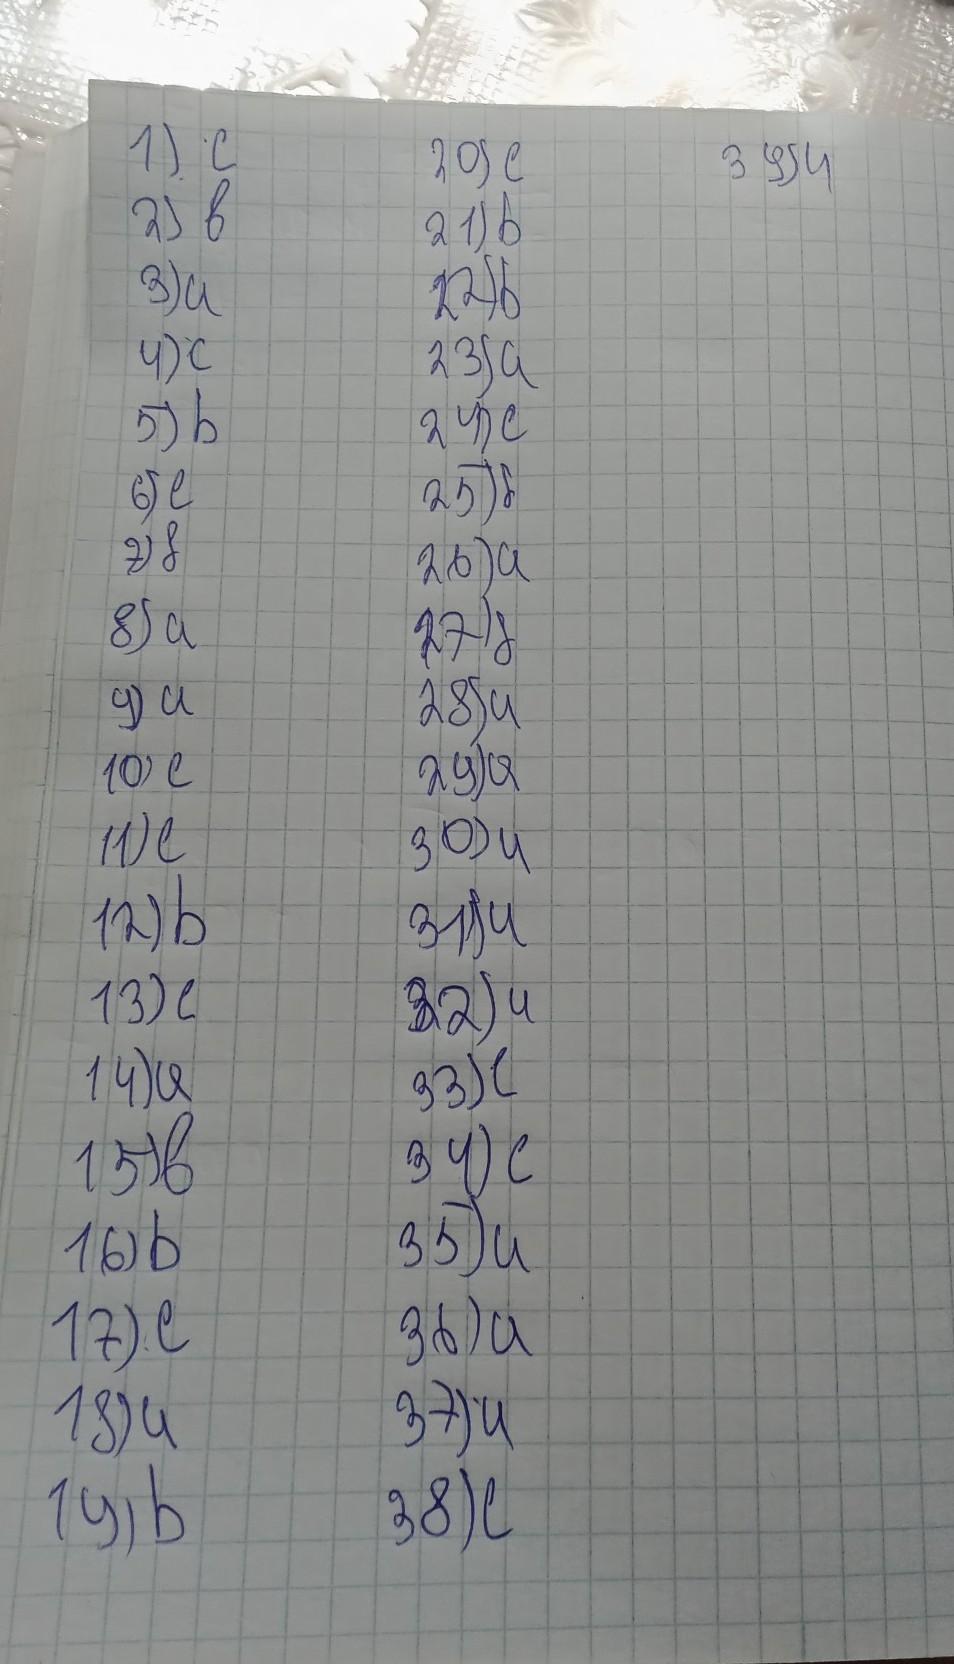 1) c
2) b
3) a
4) c
5) b
6) c
7) f
8) a
9) a
10) c
11) c
12) b
13) c
14) a
15) b
16) b
17) c
18) a
19) b
20) c
21) b
22) b
23) a
24) c
25) f
26) a
27) f
28) a
29) a
30) a
31) a
32) a
33) c
34) c
35) a
36) a
37) a
38) c
39) a